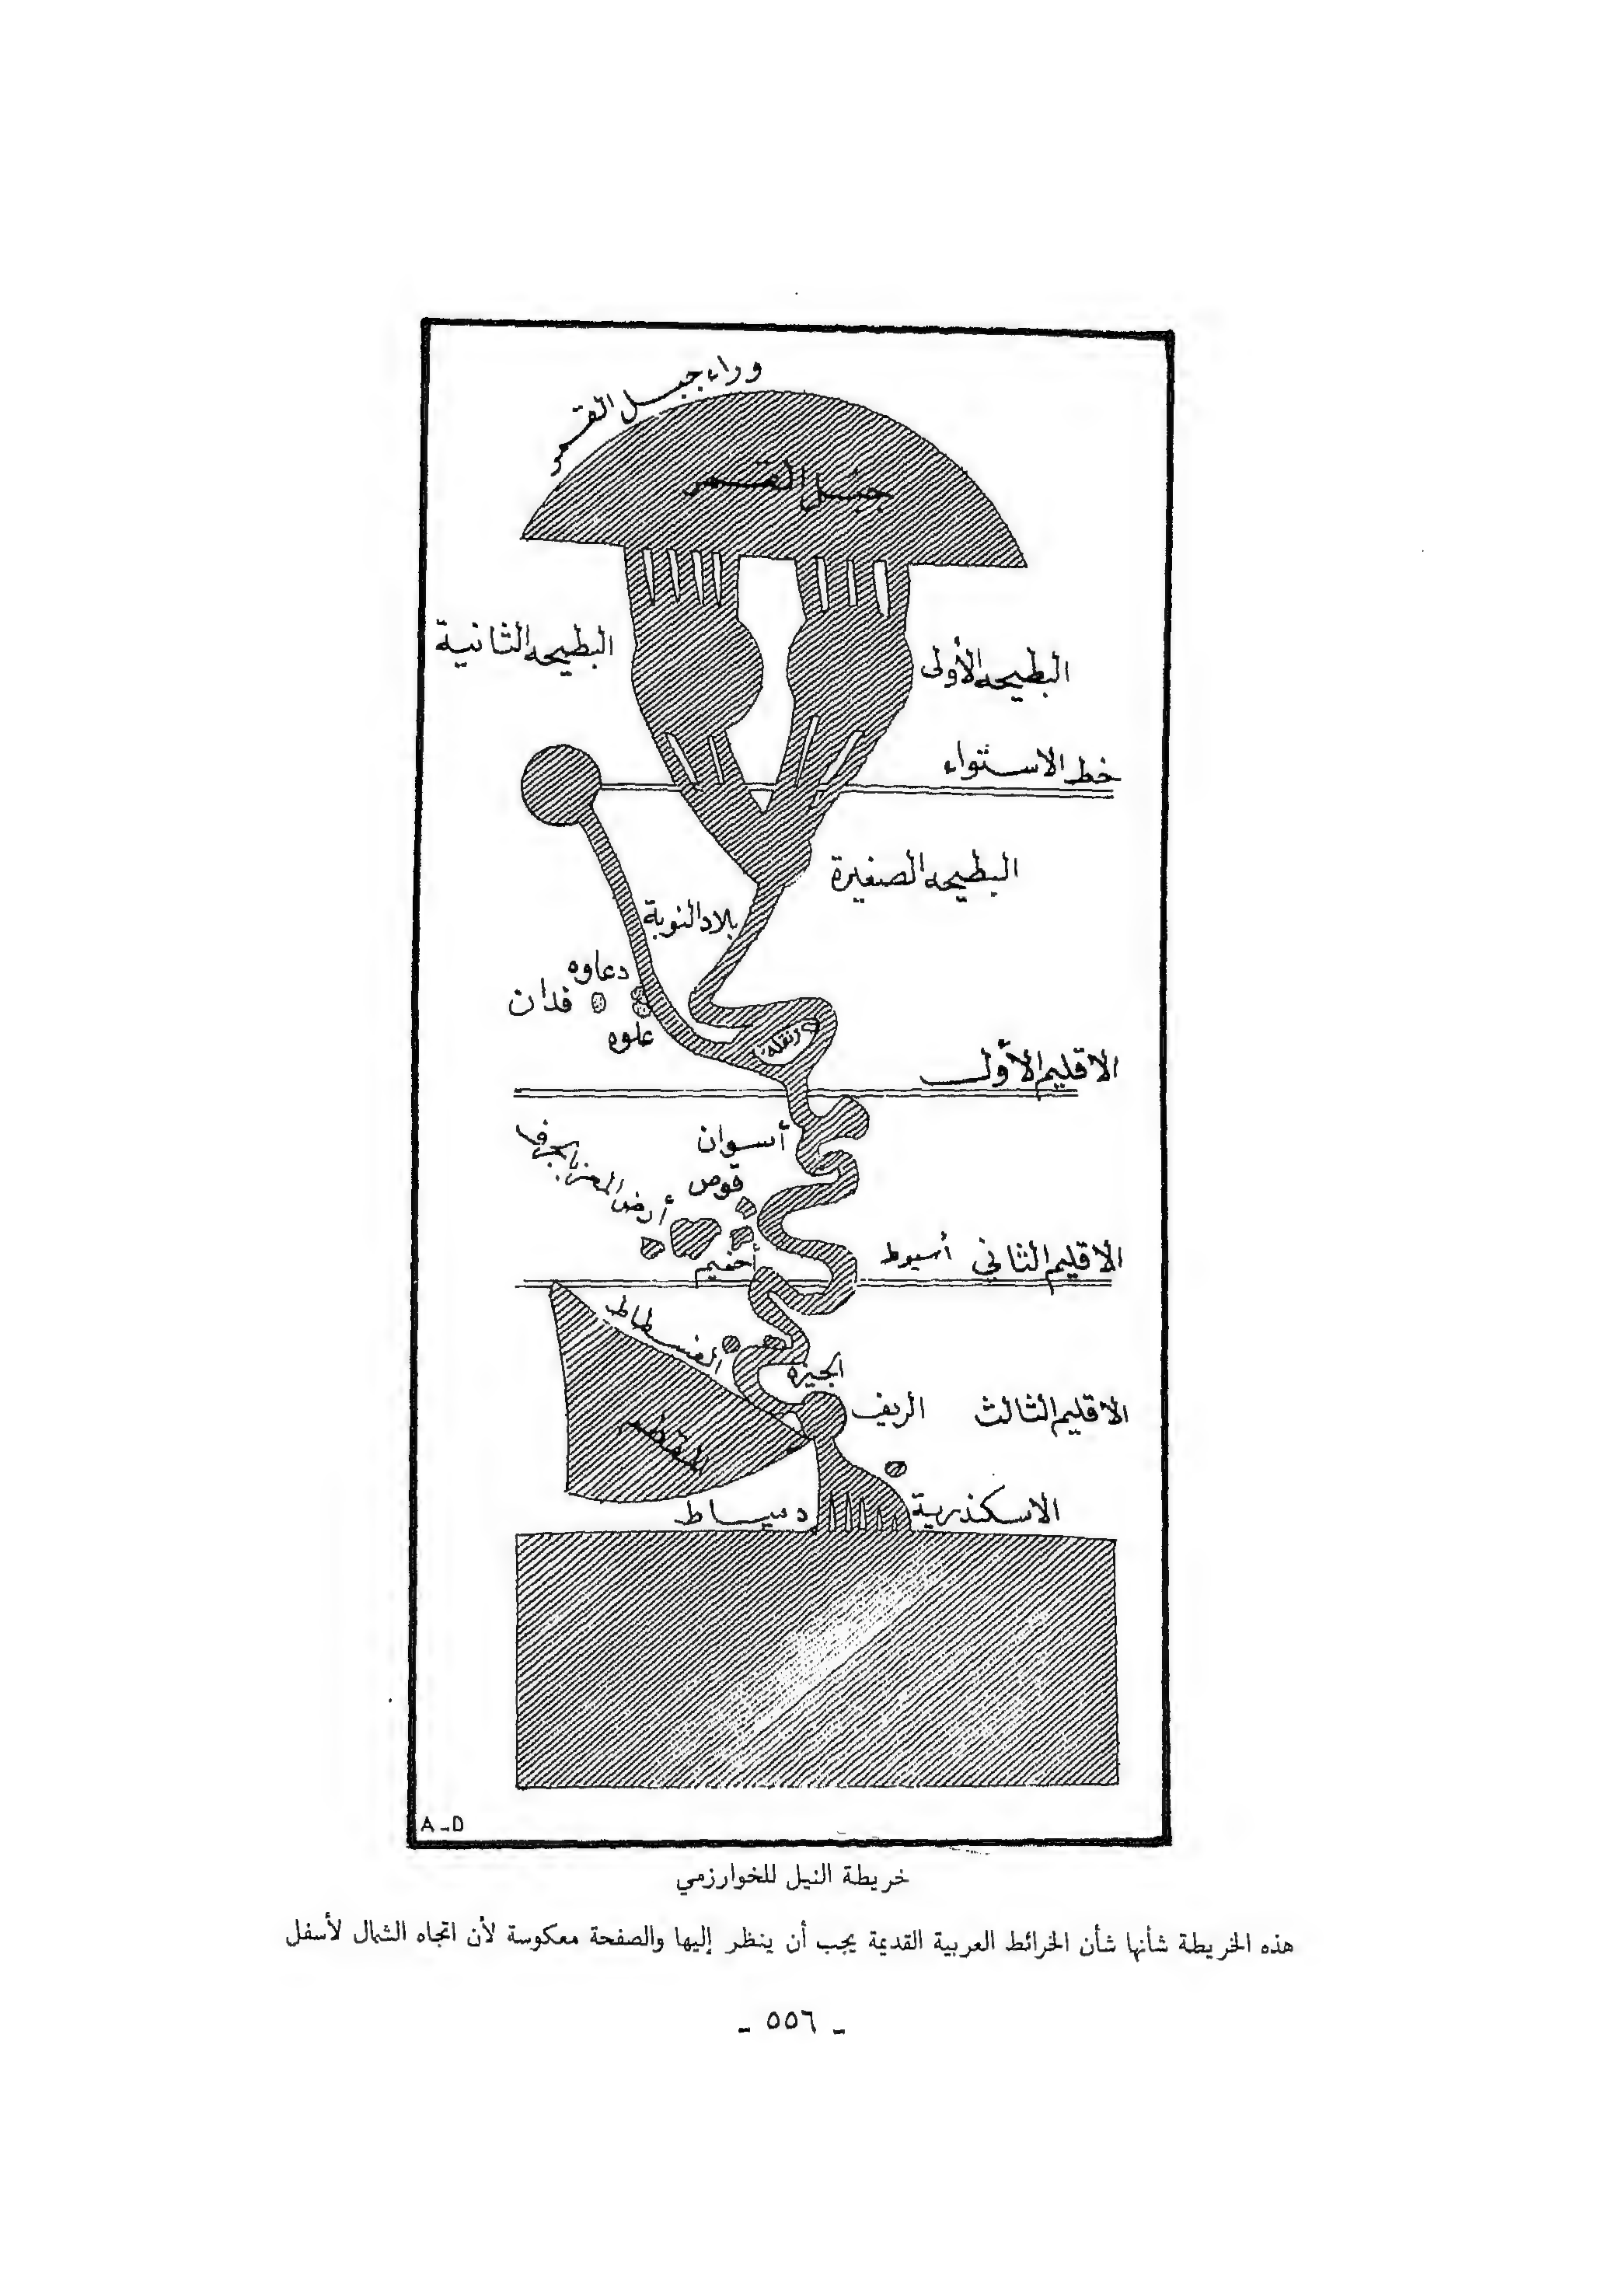 وراء جبل القمر
جبل القمر
البطيحه الثانية
البطيحه الأولى
خط الاستواء
البطيحه الصغيرة
بلاد النوبة
دعاوه
فدان
علوه
دنقله
الاقليم الأول
أسوان
قوص
أرض المعدن
أخميم
أسيوط
الاقليم الثاني
الفسطاط
الجيزه
الريف
الاقليم الثالث
المقطم
دمياط
الاسكندرية
A-D
خريطة النيل للخوارزمي
هذه الخريطة شأنها شأن الخرائط العربية القديمة يجب أن ينظر إليها والصفحة معكوسة لأن اتجاه الشمال لأسفل
- ٥٥٦ -